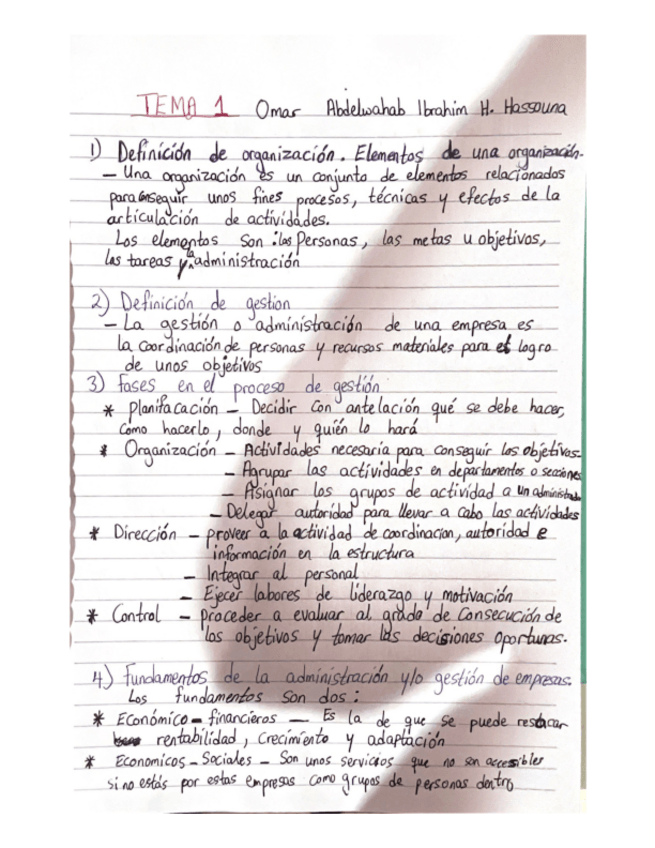 TEMA 1 Omar Abdelwahab Ibrahim H. Hassouna
1) Definición de organización. Elementos de una organización.
– Una organización es un conjunto de elementos relacionados
para conseguir unos fines procesos, técnicas y efectos de la
articulación de actividades.
Los elementos son : las Personas, las metas u objetivos,
las tareas y la administración
2) Definición de gestion
– La gestión o administración de una empresa es
la coordinación de personas y recursos materiales para el logro
de unos objetivos
3) Fases en el proceso de gestión
* planifacación – Decidir con antelación qué se debe hacer,
como hacerlo, donde y quién lo hará
* Organización – Actividades necesaria para conseguir los objetivos.
– Agrupar las actividades en departamentos o secciones
– Asignar los grupos de actividad a un administrado
– Delegar autoridad para llevar a cabo las actividades
* Dirección – proveer a la actividad de coordinacion, autoridad e
información en la estructura
– Integrar al personal
– Ejecer labores de liderazgo y motivación
* Control – proceder a evaluar al grado de consecución de
los objetivos y tomar las decisiones oportunas.
4) Fundamentos de la administración y/o gestión de empresas.
Los fundamentos son dos :
* Económico – financieros – Es la de que se puede
rentabilidad, crecimiento y adaptación
* Economicos – Sociales – Son unos servicios que no son accesibles
si no estás por estas empresas como grupos de personas dentro